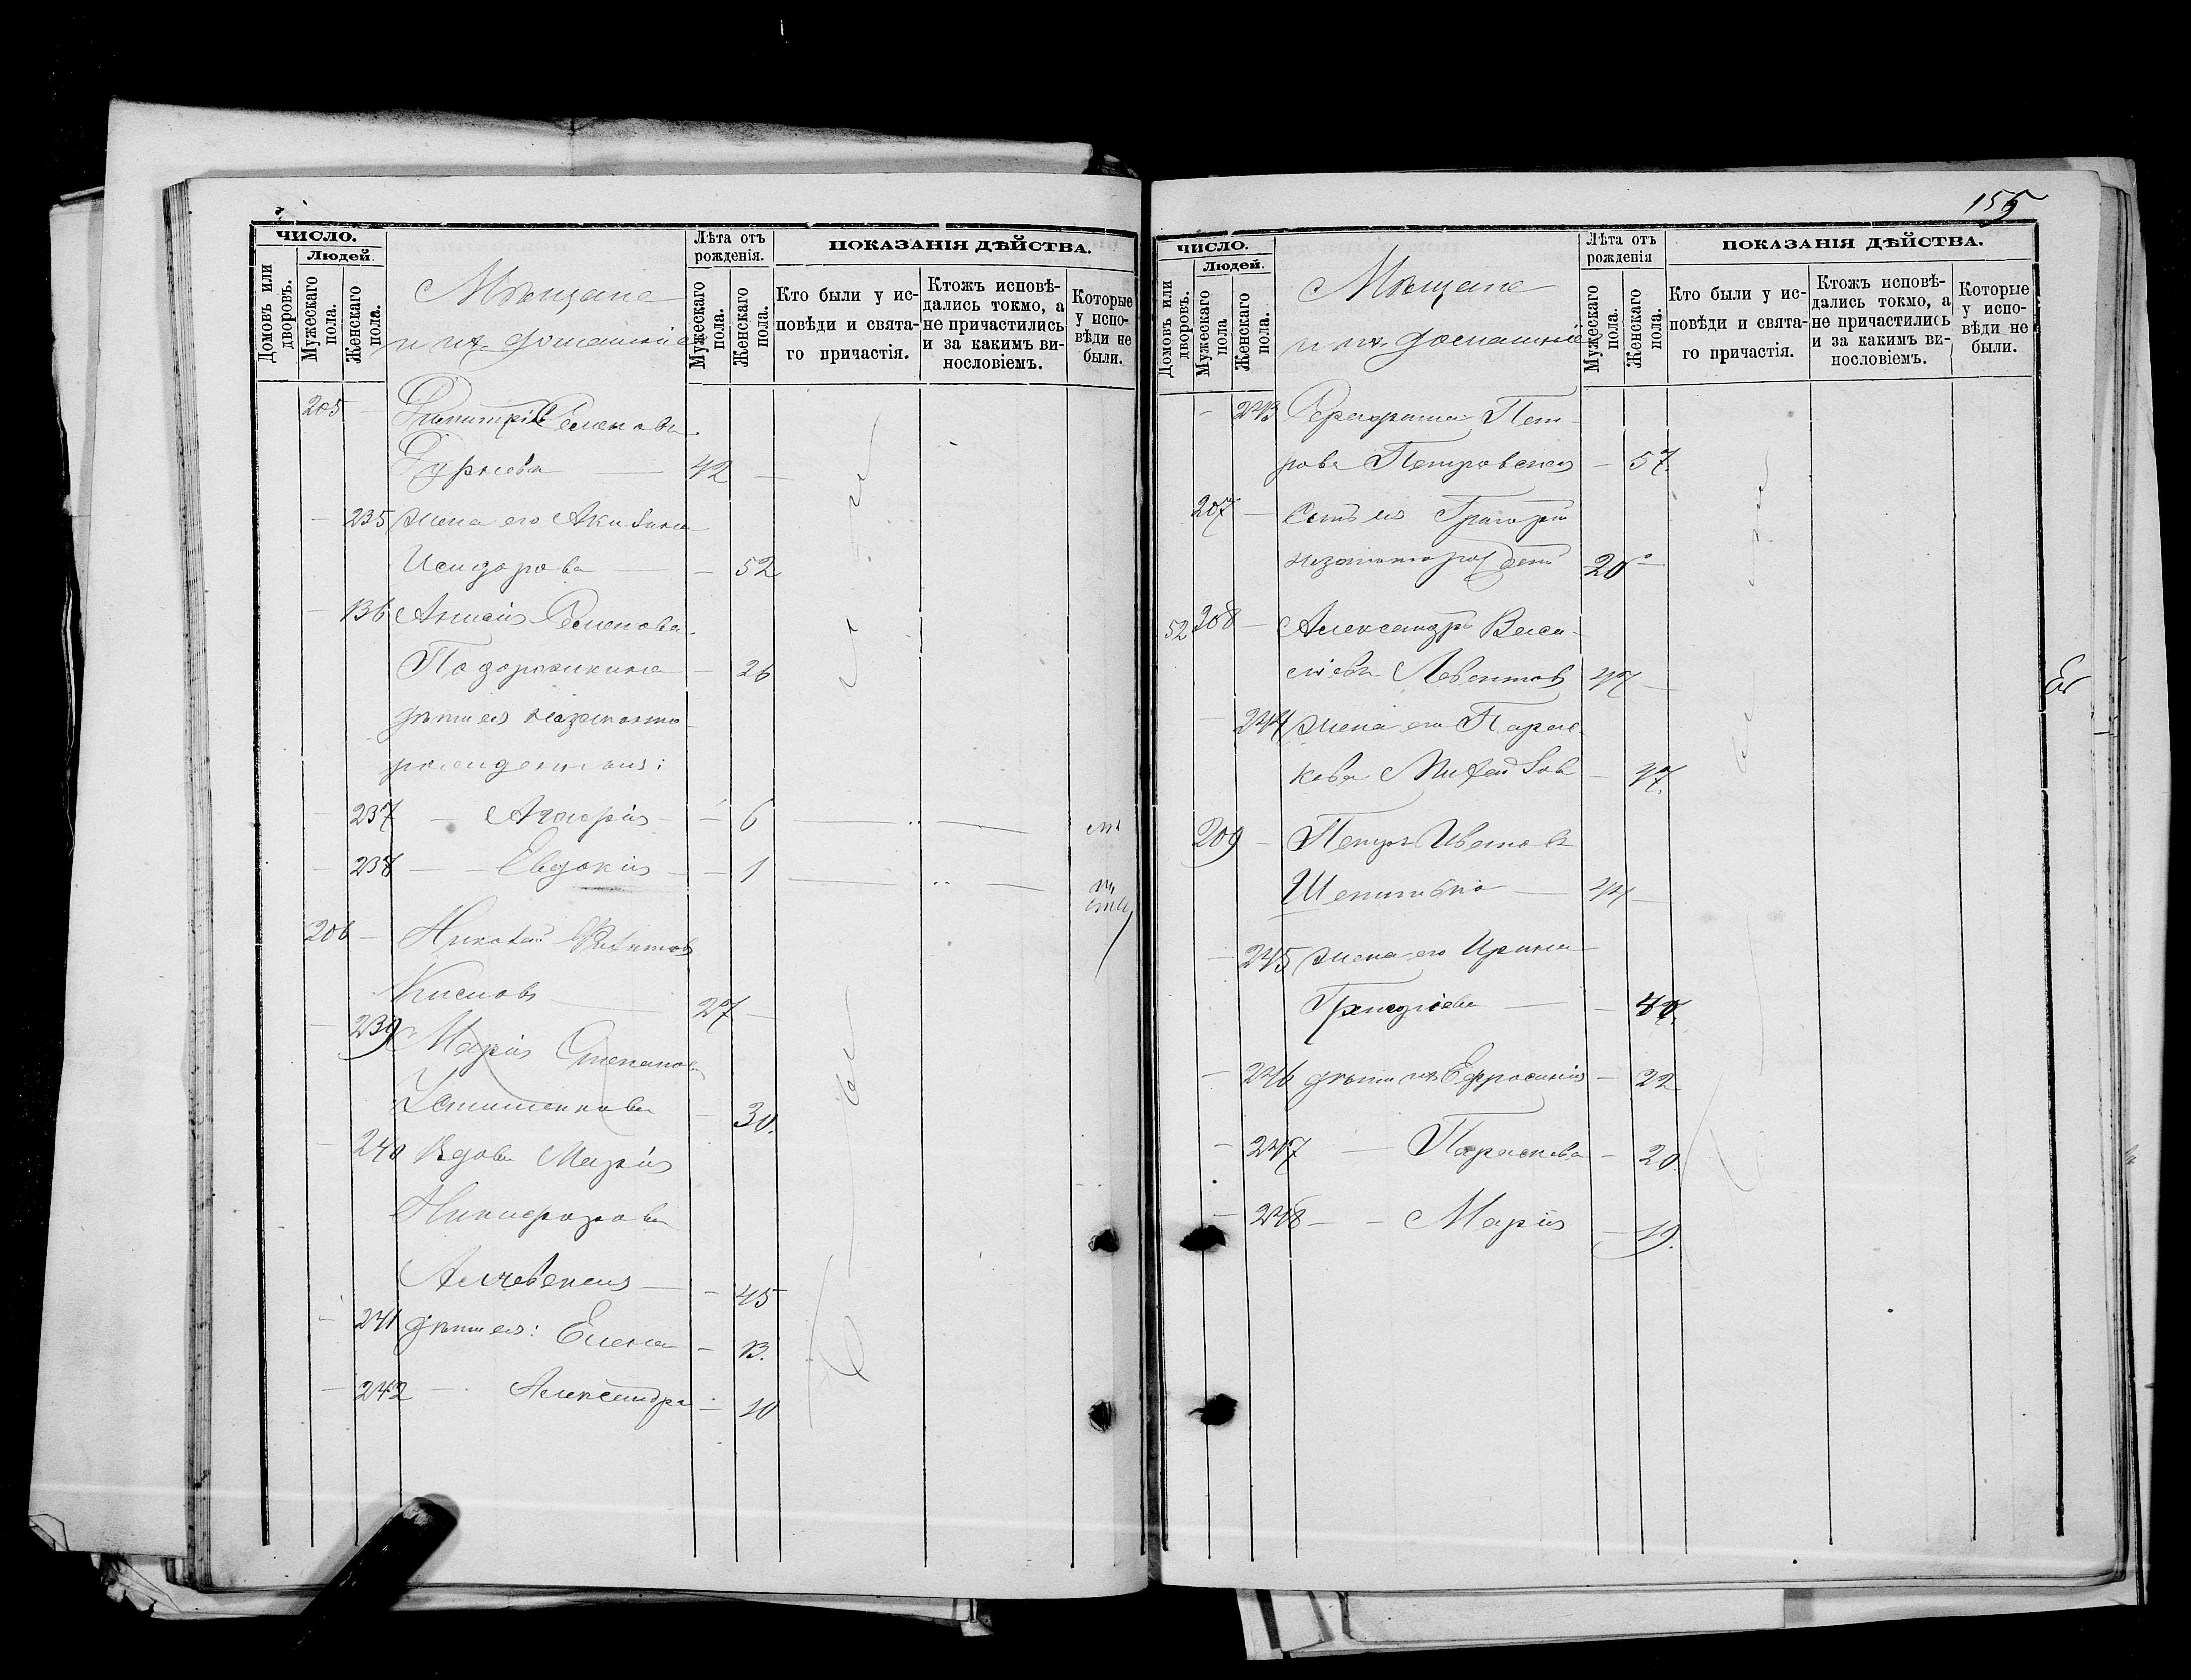 ЧИСЛО.
Людей.
Домовъ или дворовъ.
Мужескаго пола.
Женскаго пола.
Мѣщане
и ихъ домашніе
Лѣта отъ рожденія.
Мужескаго пола.
Женскаго пола.
ПОКАЗАНІЯ ДѢЙСТВА.
Кто были у исповѣди и святаго причастія.
Ктожъ исповѣдались токмо, а не причастились и за какимъ винословіемъ.
Которые у исповѣди не были.
205 — Димитрій Семеновъ
Гурьевъ — 42 —
— 235 жена его Акилина
Исидорова — — 52
— 236 Анисія Семенова
Подорожкина — 26
дѣти ея незаконно
рожденныя:
— 237 — Агафія — — 6
— 238 — Евдокія — — 1
206 — Николай
27 —
— 239 Марія Степанова
Устименкова — 30.
— 240 Вдова Марія
Никифорова
Алчевская — — 45
— 241 дѣти ея: Елена — 13.
— 242 — Александра — 10
155
ЧИСЛО.
Людей.
Домовъ или дворовъ.
Мужескаго пола
Женскаго пола.
Мѣщане
и ихъ домашніе
Лѣта отъ рожденія
Мужескаго пола.
Женскаго пола.
ПОКАЗАНІЯ ДѢЙСТВА.
Кто были у исповѣди и святаго причастія.
Ктожъ исповѣдались токмо, а не причастились и за какимъ винословіемъ.
Которые у исповѣди не были.
— 243 Пет-
рова Петровская — 57.
207 — Сынъ ея Григорій
26 —
52 208 — Александръ Васи-
льевъ Левентовъ 47 —
— 244 жена его Парас-
кева Михайлова — 47.
209 — Петръ Ивановъ
44 —
— 245 жена его Ирина
Григорьева — —
— 246 дѣти ихъ Ефросинія — 22
— 247 — Параскева — 20
— 248 — — Марія — 19.